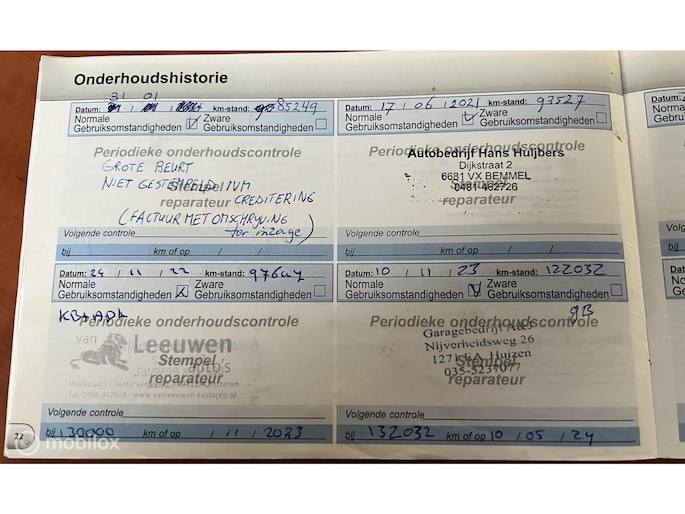 Onderhoudshistorie
31 01
Datum: / / km-stand: 85249
Normale Gebruiksomstandigheden Zware Gebruiksomstandigheden
Periodieke onderhoudscontrole
GROTE BEURT
NIET GESTEMPELD IVM
CREDITERING
(FACTUUR MET OMSCHRIJVING
ter inzage)
Stempel
reparateur
Volgende controle
bij km of op / /
Datum: 17 / 06 / 2021 km-stand: 93527
Normale Gebruiksomstandigheden Zware Gebruiksomstandigheden
Periodieke onderhoudscontrole
Autobedrijf Hans Huijbers
Dijkstraat 2
6681 VX BEMMEL
0481-462726
Stempel
reparateur
Volgende controle
bij km of op / /
Datum: 24 / 11 / 22 km-stand:
Normale Gebruiksomstandigheden Zware Gebruiksomstandigheden
Periodieke onderhoudscontrole
van
Leeuwen
auto's
Stempel
reparateur
Volgende controle
bij 130000 km of op / 11 / 2023
Datum: 10 / 11 / 23 km-stand: 122032
Normale Gebruiksomstandigheden Zware Gebruiksomstandigheden
gB
Periodieke onderhoudscontrole
Garagebedrijf
Nijverheidsweg 26
Huizen
035-5237077
Stempel
reparateur
Volgende controle
bij 132032 km of op 10 / 05 / 24
22
mobilox